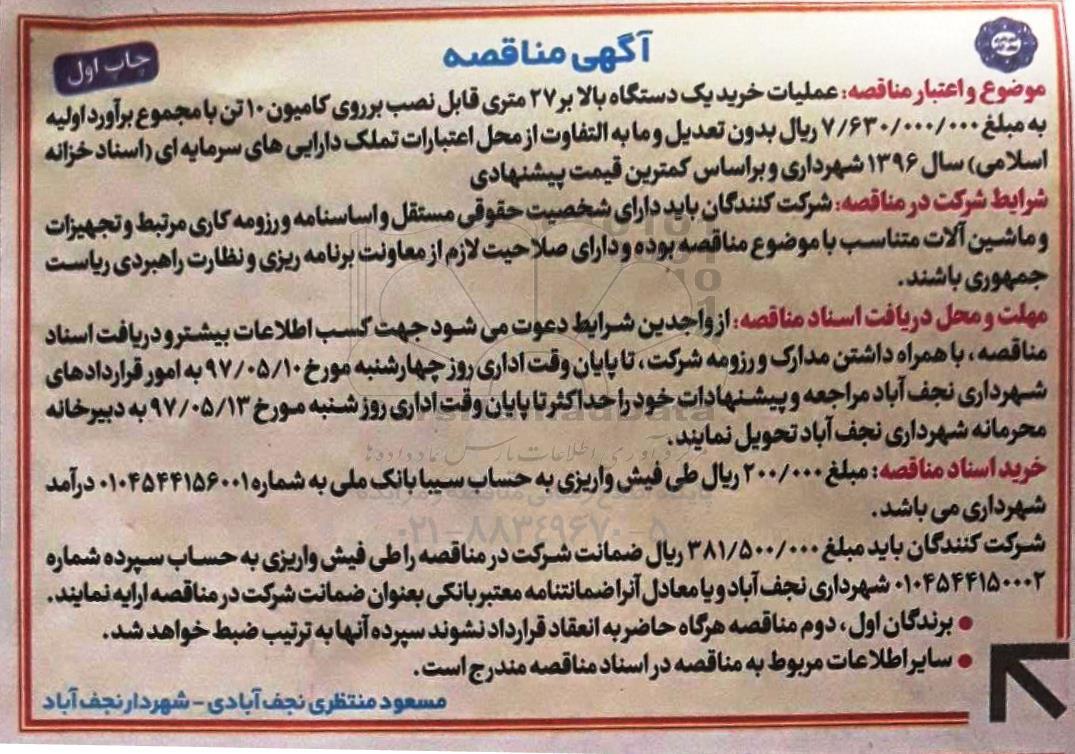 آگهی مناقصه
چاپ اول
موضوع و اعتبار مناقصه: عملیات خرید یک دستگاه بالابر ۲۷ متری قابل نصب بر روی کامیون ۱۰ تن با مجموع برآورد اولیه
به مبلغ ۷/۶۳۰/۰۰۰/۰۰۰ ریال بدون تعدیل و ما به التفاوت از محل اعتبارات تملک دارایی های سرمایه ای (اسناد خزانه
اسلامی) سال ۱۳۹۶ شهرداری و براساس کمترین قیمت پیشنهادی
شرایط شرکت در مناقصه: شرکت کنندگان باید دارای شخصیت حقوقی مستقل و اساسنامه و رزومه کاری مرتبط و تجهیزات
و ماشین آلات متناسب با موضوع مناقصه بوده و دارای صلاحیت لازم از معاونت برنامه ریزی و نظارت راهبردی ریاست
جمهوری باشند.
مهلت و محل دریافت اسناد مناقصه: از واجدین شرایط دعوت می شود جهت کسب اطلاعات بیشتر و دریافت اسناد
مناقصه، با همراه داشتن مدارک و رزومه شرکت، تا پایان وقت اداری روز چهارشنبه مورخ ۹۷/۰۵/۱۰ به امور قراردادهای
شهرداری نجف آباد مراجعه و پیشنهادات خود را حداکثر تا پایان وقت اداری روز شنبه مورخ ۹۷/۰۵/۱۳ به دبیرخانه
محرمانه شهرداری نجف آباد تحویل نمایند.
خرید اسناد مناقصه: مبلغ ۲۰۰/۰۰۰ ریال طی فیش واریزی به حساب سیبا بانک ملی به شماره ۰۱۰۴۵۴۴۱۵۶۰۰۱ درآمد
شهرداری می باشد.
۰۲۱-۸۸۳۴۹۶۷۰-۵
شرکت کنندگان باید مبلغ ۳۸۱/۵۰۰/۰۰۰ ریال ضمانت شرکت در مناقصه را طی فیش واریزی به حساب سپرده شماره
۰۱۰۴۵۴۴۱۵۰۰۰۲ شهرداری نجف آباد و یا معادل آنرا ضمانتنامه معتبر بانکی بعنوان ضمانت شرکت در مناقصه ارایه نمایند.
● برندگان اول، دوم مناقصه هرگاه حاضر به انعقاد قرارداد نشوند سپرده آنها به ترتیب ضبط خواهد شد.
● سایر اطلاعات مربوط به مناقصه در اسناد مناقصه مندرج است.
مسعود منتظری نجف آبادی - شهردار نجف آباد